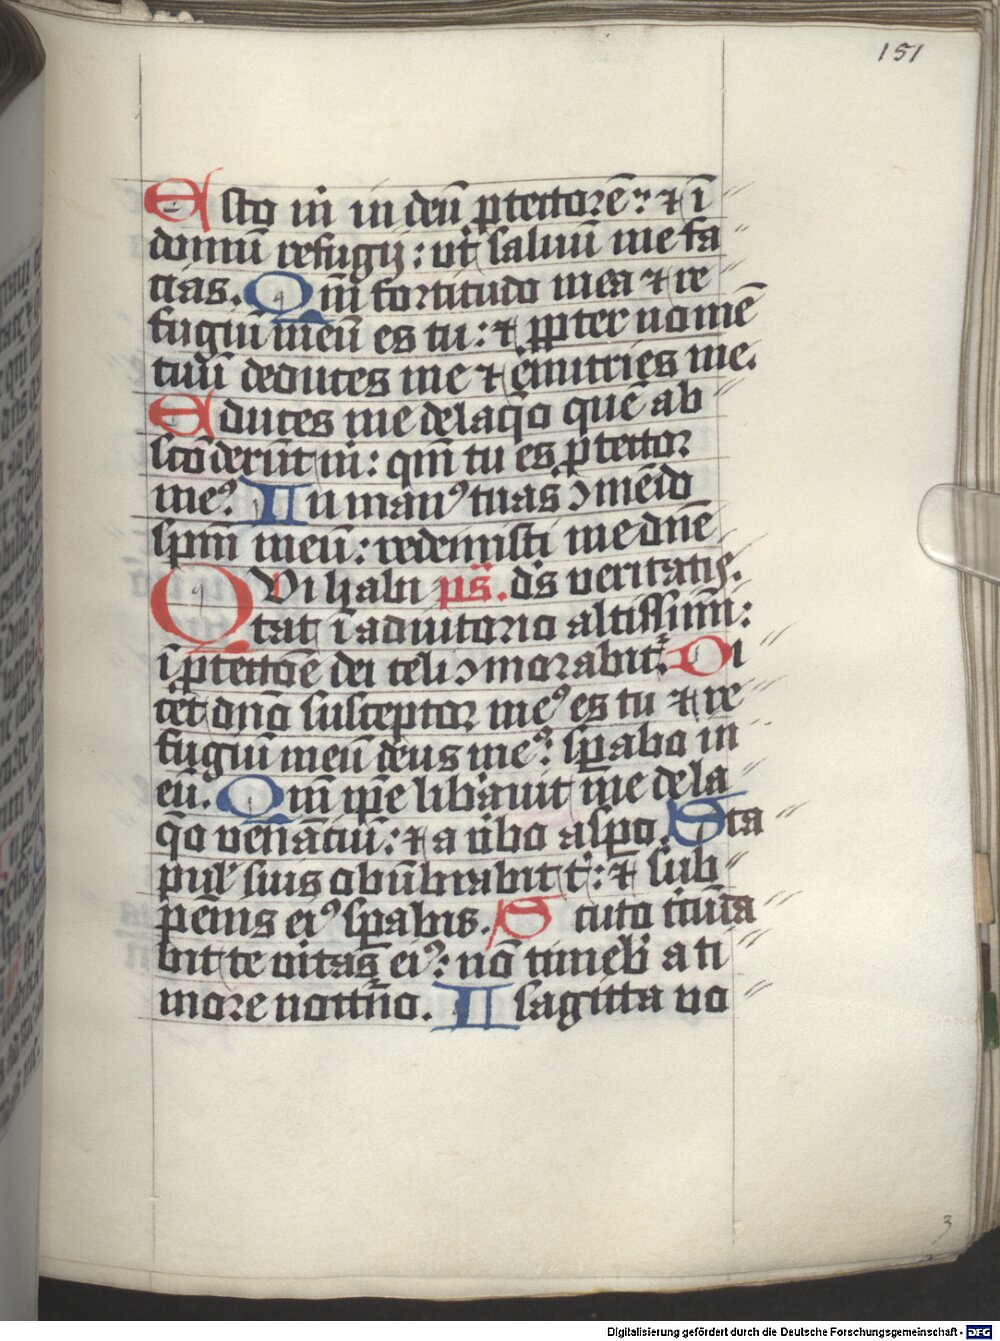 151
Esto m̄ in deū ꝓtectorē: ⁊ ī
domū refugij: vt saluū me fa
cias. Qm̄ fortitudo mea ⁊ re
fugiū meū es tu: ⁊ ꝓpter nomē
tuū deduces me ⁊ enutries me.
Educes me de laq̄o quē ab
scōderūt m̄: qm̄ tu es ꝓtector
meꝰ. In manꝰ tuas ɔmēdo
spm̄ meū: redemisti me dn̄e
ds̄ veritatis.
QVi habi ps̄.
tat ī adiutorio altissimi:
ī ꝓtectōe dei celi ɔmorabit̄. Di
cet dn̄o susceptor meꝰ es tu ⁊ re
fugiū meū deus meꝰ: sꝑabo in
eū. Qm̄ ip̄e lib̄auit me de la
q̄o venātiū: ⁊ a v̄bo aspo. Sca
pul' suis obūbrabit t': ⁊ sub
pēnis eiꝰ sꝑabis. Scuto circūda
bit te v̄itas eiꝰ: nō timeb' a ti
more nocťno. A sagitta vo
3
Digitalisierung gefördert durch die Deutsche Forschungsgemeinschaft - DFG